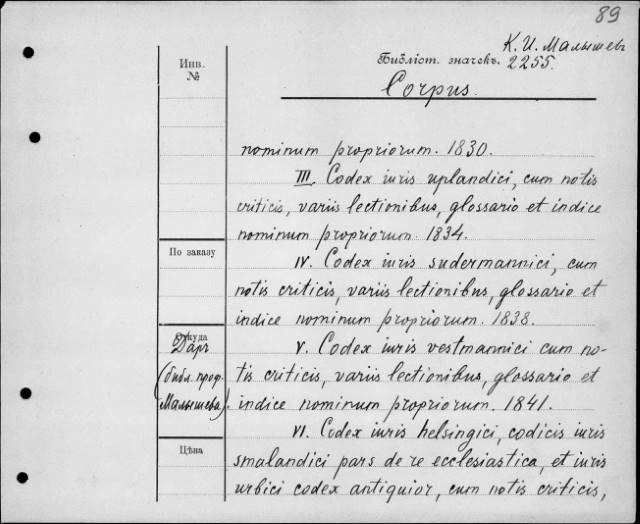 89
К. И. Малышев
Библіот. значекъ. 2255.
Corpus.
Инв.
№
nominum propriorum. 1830.
III. Codex iuris uplandici, cum notis
criticis, variis lectionibus, glossario et indice
nominum propriorum. 1834.
По заказу
IV. Codex iuris sudermannici, cum
notis criticis, variis lectionibus, glossario et
indice nominum propriorum. 1838.
Откуда
Даръ
(библ. проф.
Малышева).
V. Codex iuris vestmannici cum no-
tis criticis, variis lectionibus, glossario et
indice nominum propriorum. 1841.
VI. Codex iuris helsingici, codicis iuris
Цѣна
smalandici pars de re ecclesiastica, et iuris
urbici codex antiquior, cum notis criticis,